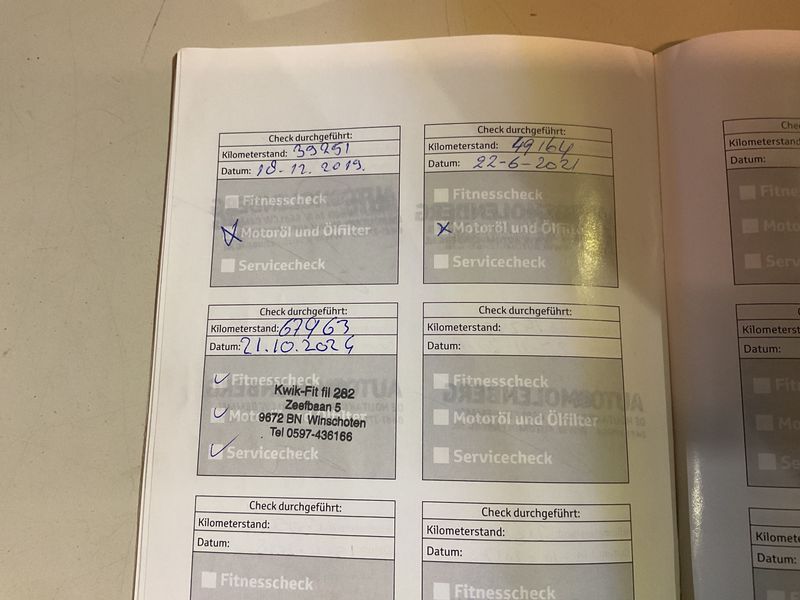 Check durchgeführt:
Kilometerstand: 39251
Datum: 18.12.2019.
Fitnesscheck
Motoröl und Ölfilter
Servicecheck
Check durchgeführt:
Kilometerstand: 49164
Datum: 22-6-2021
Fitnesscheck
Motoröl und Ölfilter
Servicecheck
Check durchgeführt:
Kilometerstand: 67963
Datum: 21.10.2024
Fitnesscheck
Motoröl und Ölfilter
Servicecheck
Kwik-Fit fil 282
Zeefbaan 5
9672 BN Winschoten
Tel 0597-436166
Check durchgeführt:
Kilometerstand:
Datum:
Fitnesscheck
Motoröl und Ölfilter
Servicecheck
Check durchgeführt:
Kilometerstand:
Datum:
Fitnesscheck
Check durchgeführt:
Kilometerstand:
Datum:
Fitnesscheck
Kilometerstand:
Datum:
Kilometerstand:
Datum:
Datum: